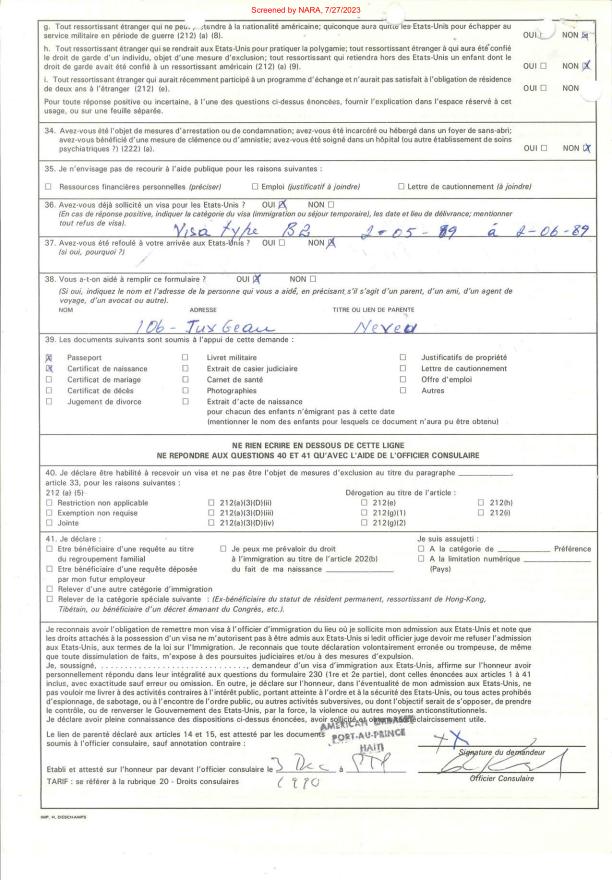 Screened by NARA, 7/27/2023
g. Tout ressortissant étranger qui ne peut prétendre à la nationalité américaine; quiconque aura quitté les Etats-Unis pour échapper au
service militaire en période de guerre (212) (a) (8). OUI ☐ NON ☒
h. Tout ressortissant étranger qui se rendrait aux Etats-Unis pour pratiquer la polygamie; tout ressortissant étranger à qui aura été confié
le droit de garde d'un individu, objet d'une mesure d'exclusion; tout ressortissant qui retiendra hors des Etats-Unis un enfant dont le
droit de garde avait été confié à un ressortissant américain (212) (a) (9). OUI ☐ NON ☒
i. Tout ressortissant étranger qui aurait récemment participé à un programme d'échange et n'aurait pas satisfait à l'obligation de résidence
de deux ans à l'étranger (212) (e). OUI ☐ NON
Pour toute réponse positive ou incertaine, à l'une des questions ci-dessus énoncées, fournir l'explication dans l'espace réservé à cet
usage, ou sur une feuille séparée.
34. Avez-vous été l'objet de mesures d'arrestation ou de condamnation; avez-vous été incarcéré ou hébergé dans un foyer de sans-abri;
avez-vous bénéficié d'une mesure de clémence ou d'amnistie; avez-vous été soigné dans un hôpital (ou autre établissement de soins
psychiatriques ?) (222) (a). OUI ☐ NON ☒
35. Je n'envisage pas de recourir à l'aide publique pour les raisons suivantes :
☐ Ressources financières personnelles (préciser) ☐ Emploi (justificatif à joindre) ☐ Lettre de cautionnement (à joindre)
36. Avez-vous déjà sollicité un visa pour les Etats-Unis ? OUI ☒ NON ☐
(En cas de réponse positive, indiquer la catégorie du visa (immigration ou séjour temporaire), les date et lieu de délivrance; mentionner
tout refus de visa). Visa type B2 2-05-89 à 2-06-89
37. Avez-vous été refoulé à votre arrivée aux Etats-Unis ? OUI ☐ NON ☒
(si oui, pourquoi ?)
38. Vous a-t-on aidé à remplir ce formulaire ? OUI ☒ NON ☐
(Si oui, indiquez le nom et l'adresse de la personne qui vous a aidé, en précisant s'il s'agit d'un parent, d'un ami, d'un agent de
voyage, d'un avocat ou autre).
NOM ADRESSE TITRE OU LIEN DE PARENTE
106- Neveu
39. Les documents suivants sont soumis à l'appui de cette demande :
☒ Passeport ☐ Livret militaire ☐ Justificatifs de propriété
☒ Certificat de naissance ☐ Extrait de casier judiciaire ☐ Lettre de cautionnement
☐ Certificat de mariage ☐ Carnet de santé ☐ Offre d'emploi
☐ Certificat de décès ☐ Photographies ☐ Autres
☐ Jugement de divorce ☐ Extrait d'acte de naissance
pour chacun des enfants n'émigrant pas à cette date
(mentionner le nom des enfants pour lesquels ce document n'aura pu être obtenu)
NE RIEN ECRIRE EN DESSOUS DE CETTE LIGNE
NE REPONDRE AUX QUESTIONS 40 ET 41 QU'AVEC L'AIDE DE L'OFFICIER CONSULAIRE
40. Je déclare être habilité à recevoir un visa et ne pas être l'objet de mesures d'exclusion au titre du paragraphe ____________,
article 33, pour les raisons suivantes :
212 (a) (5)· Dérogation au titre de l'article :
☐ Restriction non applicable ☐ 212(a)(3)(D)(ii) ☐ 212(e) ☐ 212(h)
☐ Exemption non requise ☐ 212(a)(3)(D)(iii) ☐ 212(g)(1) ☐ 212(i)
☐ Jointe ☐ 212(a)(3)(D)(iv) ☐ 212(g)(2)
41. Je déclare : Je suis assujetti :
☐ Etre bénéficiaire d'une requête au titre ☐ Je peux me prévaloir du droit ☐ A la catégorie de ____________ Préférence
du regroupement familial à l'immigration au titre de l'article 202(b) ☐ A la limitation numérique ____________
☐ Etre bénéficiaire d'une requête déposée du fait de ma naissance ____________ (Pays)
par mon futur employeur
☐ Relever d'une autre catégorie d'immigration
☐ Relever de la catégorie spéciale suivante : (Ex-bénéficiaire du statut de résident permanent, ressortissant de Hong-Kong,
Tibétain, ou bénéficiaire d'un décret émanant du Congrès, etc.).
Je reconnais avoir l'obligation de remettre mon visa à l'officier d'immigration du lieu où je sollicite mon admission aux Etats-Unis et note que
les droits attachés à la possession d'un visa ne m'autorisent pas à être admis aux Etats-Unis si ledit officier juge devoir me refuser l'admission
aux Etats-Unis, aux termes de la loi sur l'Immigration. Je reconnais que toute déclaration volontairement erronée ou trompeuse, de même
que toute dissimulation de faits, m'expose à des poursuites judiciaires et/ou à des mesures d'expulsion.
Je, soussigné, . . . . . . . . . . . . . . . . . . . . . . . . . . ., demandeur d'un visa d'immigration aux Etats-Unis, affirme sur l'honneur avoir
personnellement répondu dans leur intégralité aux questions du formulaire 230 (1re et 2e partie), dont celles énoncées aux articles 1 à 41
inclus, avec exactitude sauf erreur ou omission. En outre, je déclare sur l'honneur, dans l'éventualité de mon admission aux Etats-Unis, ne
pas vouloir me livrer à des activités contraires à l'intérêt public, portant atteinte à l'ordre et à la sécurité des Etats-Unis, ou tous actes prohibés
d'espionnage, de sabotage, ou à l'encontre de l'ordre public, ou autres activités subversives, ou dont l'objectif serait de s'opposer, de prendre
le contrôle, ou de renverser le Gouvernement des Etats-Unis, par la force, la violence ou autres moyens anticonstitutionnels.
Je déclare avoir pleine connaissance des dispositions ci-dessus énoncées, avoir sollicité et obtenu tout éclaircissement utile.
AMERICAN EMBASSY
PORT-AU-PRINCE
HAITI
Le lien de parenté évoqué aux articles 14 et 15, est attesté par les documents
soumis à l'officier consulaire, sauf annotation contraire :
+X
Signature du demandeur
Etabli et attesté sur l'honneur par devant l'officier consulaire le 3 Dec à PTP
1990
Officier Consulaire
TARIF : se référer à la rubrique 20 - Droits consulaires
IMP. H. DESCHAMPS